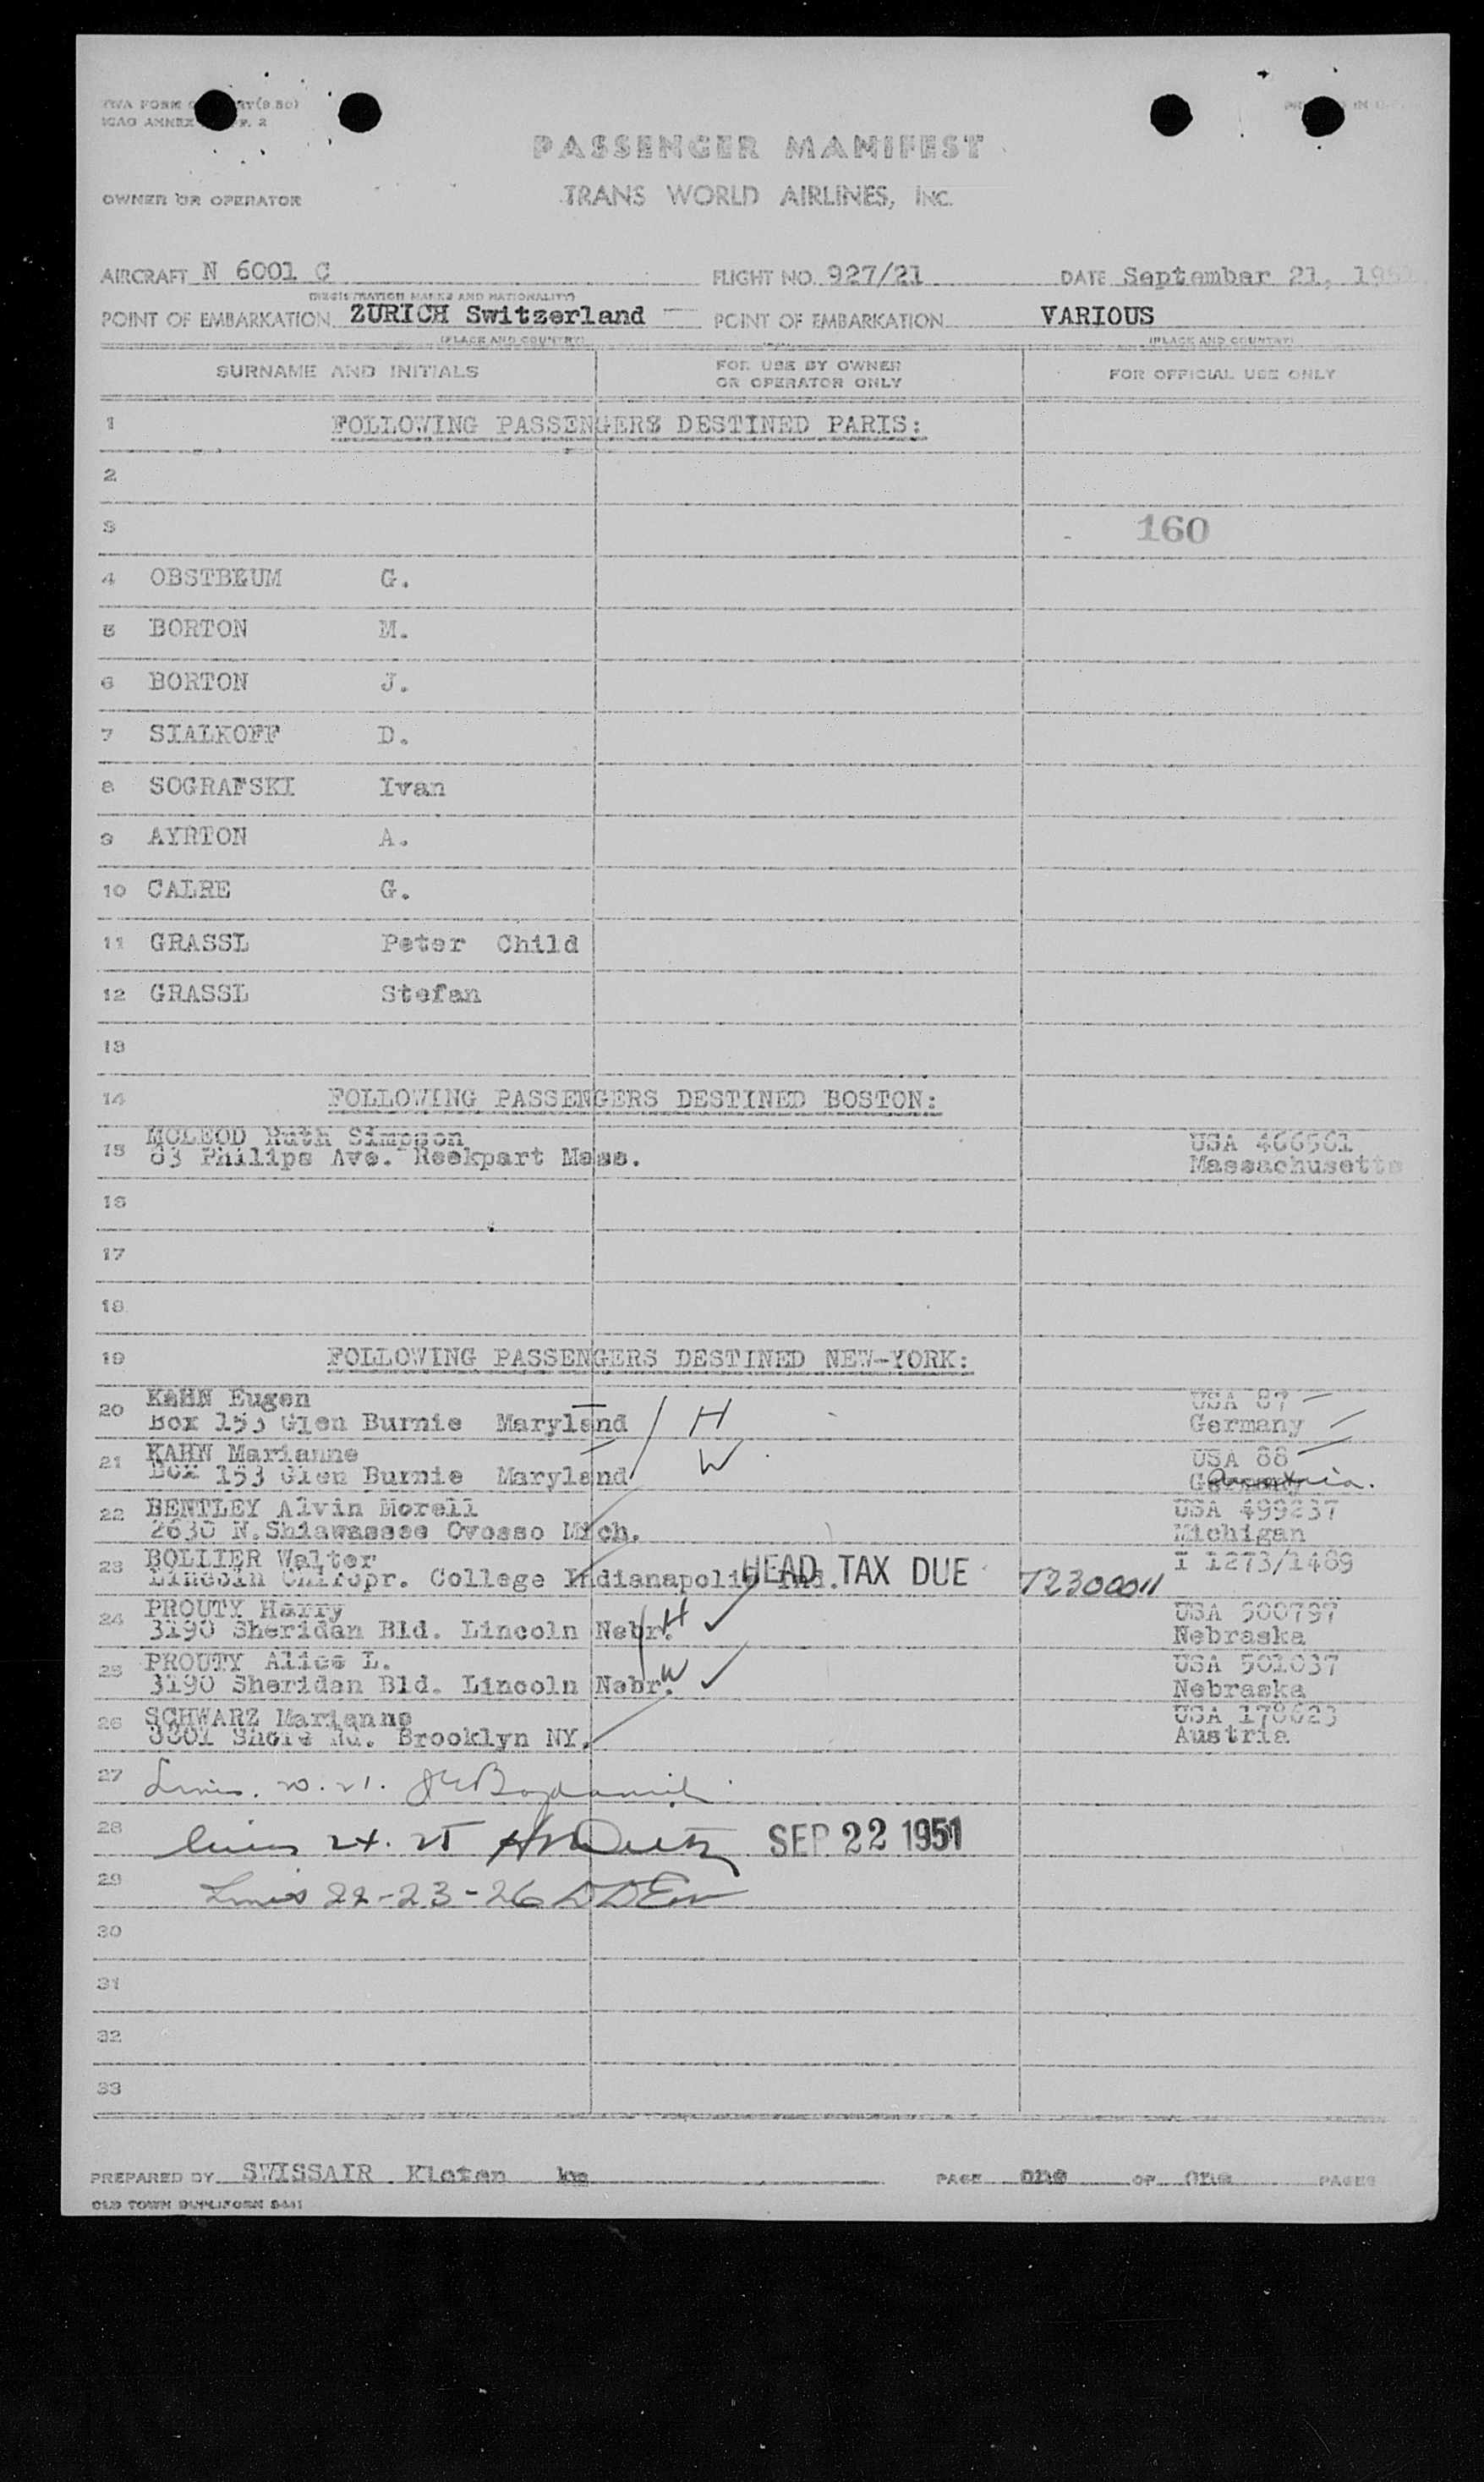 PASSENGER MANIFEST
OWNER OR OPERATOR TRANS WORLD AIRLINES, INC.
AIRCRAFT N 6001 C FLIGHT NO. 927/21 DATE September 21,
(REGISTRATION MARKS AND NATIONALITY)
POINT OF EMBARKATION ZURICH Switzerland POINT OF EMBARKATION VARIOUS
(PLACE AND COUNTRY) (PLACE AND COUNTRY)
SURNAME AND INITIALS FOR USE BY OWNER OR OPERATOR ONLY FOR OFFICIAL USE ONLY
1 FOLLOWING PASSENGERS DESTINED PARIS:
2
3 160
4 OBSTBEUM G.
5 BORTON M.
6 BORTON J.
7 SIALKOFF D.
8 SOGRAFSKI Ivan
9 AYRTON A.
10 CALRE G.
11 GRASSL Peter Child
12 GRASSL Stefan
13
14 FOLLOWING PASSENGERS DESTINED BOSTON:
15 MCLEOD Ruth Simpson USA 466561
83 Philips Ave. Reekpart Mass. Massachusetts
16
17
18
19 FOLLOWING PASSENGERS DESTINED NEW-YORK:
20 KAHN Eugen H USA 87
Box 153 Glen Burnie Maryland Germany
21 KAHN Marianne W USA 88
Box 153 Glen Burnie Maryland Austria.
22 BENTLEY Alvin Morell USA 499237
2630 N.Shiawassee Ovosso Mich. Michigan
23 BOLLIER Walter I 1273/1489
Lincoln Chiropr. College Indianapolis Ind. HEAD TAX DUE T2300011
24 PROUTY Harry H USA 500797
3190 Sheridan Bld. Lincoln Nebr. Nebraska
25 PROUTY Alice L. W USA 501037
3190 Sheridan Bld. Lincoln Nebr. Nebraska
26 SCHWARZ Marianne USA 178623
3801 Shore Rd. Brooklyn NY. Austria
27 Lines. 20. 21.
28 lines 24. 25 SEP 22 1951
29 Lines 22-23-26
30
31
32
33
PREPARED BY SWISSAIR Kloten PAGE one OF one PAGES
OLD TOWN DUPLIFORM